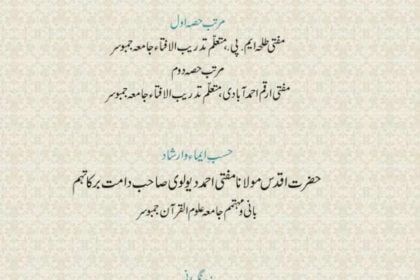 مرتب حصہ اول
مفتی طلحہ ایم. پی.، متعلّم تدریب الافتاء جامعہ جمبوسر
مرتب حصہ دوم
مفتی ارقم احمدآبادی، متعلّم تدریب الافتاء جامعہ جمبوسر
حسب ایماء وارشاد
حضرت اقدس مولانا مفتی احمد دیولوی صاحب دامت برکاتہم
بانی ومہتمم جامعہ علوم القرآن جمبوسر